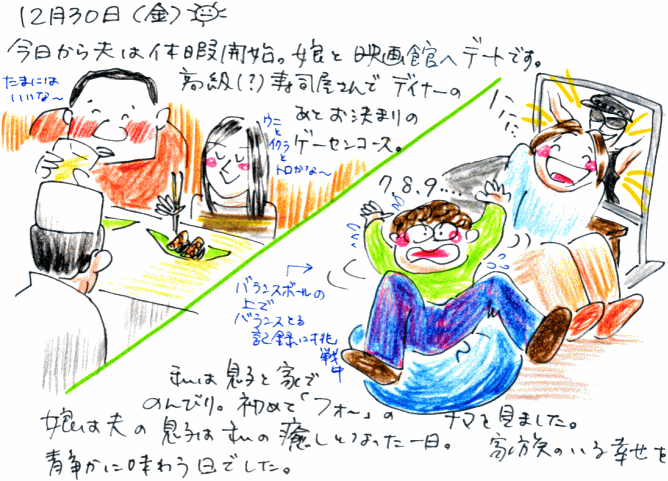 12月30日(金)
今日から夫は休暇開始。娘と映画館へデートです。
高級(?)寿司屋さんでディナーの
あとお決まりの
ゲーセンコース。
たまには
いいな〜
ウニ
と
イクラ
と
トロかな〜
7.8.9....
バランスボールの
上で
バランスとる
記録に挑
戦中
私は息子と家で
のんびり。初めて「フォ〜」の ナマを見ました。
娘は夫の 息子は私の癒しとなった一日。 家族のいる幸せを
静かに味わう日でした。